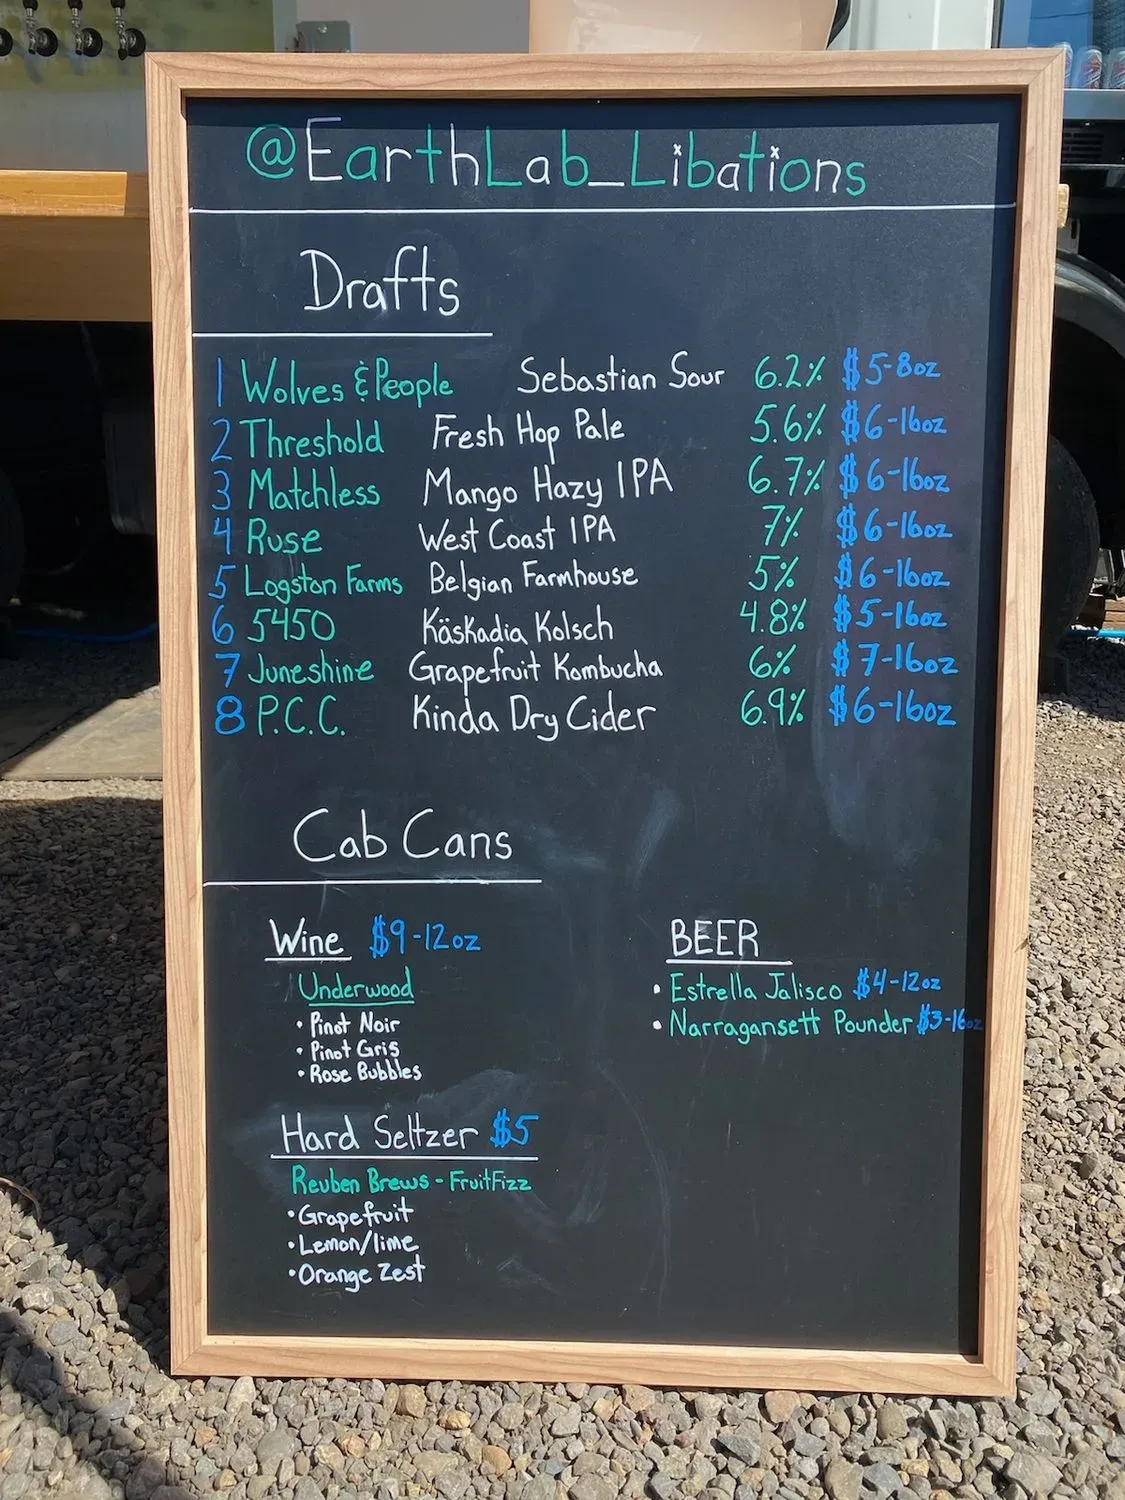 @EarthLab_Libations
Drafts
1 Wolves & People Sebastian Sour 6.2% $5-8oz
2 Threshold Fresh Hop Pale 5.6% $6-16oz
3 Matchless Mango Hazy IPA 6.7% $6-16oz
4 Ruse West Coast IPA 7% $6-16oz
5 Logston Farms Belgian Farmhouse 5% $6-16oz
6 5450 Käskadia Kolsch 4.8% $5-16oz
7 Juneshine Grapefruit Kombucha 6% $7-16oz
8 P.C.C. Kinda Dry Cider 6.9% $6-16oz
Cab Cans
Wine $9-12oz
Underwood
• Pinot Noir
• Pinot Gris
• Rose Bubbles
Hard Seltzer $5
Reuben Brews - FruitFizz
• Grapefruit
• Lemon/lime
• Orange Zest
BEER
• Estrella Jalisco $4-12oz
• Narragansett Pounder $3-16oz